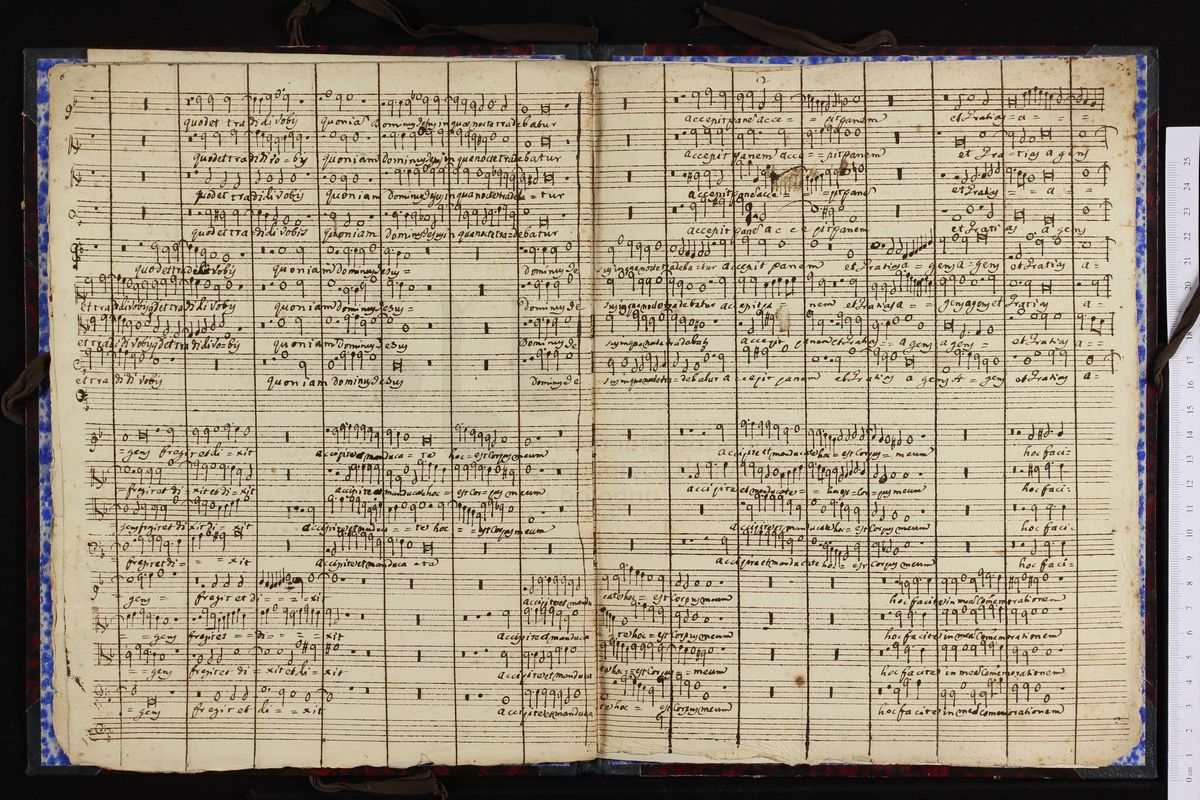 6
7
quodet tradidi vobis quoniã Dominus Jesus in qua nocte tradebatur accepit panẽ acce = = pit panem et gratias = a = = =
quodet tradidi vo = bis quoniam dominus Jesus in qua nocte tradebatur accepit panem acce = = pit panem et gratias agens
quodet tradidi vobis quoniam dominus Jesus in qua nocte tradeba = tur accepit panẽ acce = pit panẽ et gratias = = a =
quodet tradidi vobis quoniam dominus Jesus in qua nocte tradebatur accepit panẽ acce pit panem et gratias a gens
quodet tradidi vobis quoniam Dominus Jesus = dominus Je sus in qua nocte tradeba = tur accepit panem et gratias a = gens a = gens et gratias a =
et tradidi vobis quodet tradidi vobis quoniam Dominus Jesus = Dominus Je sus in qua nocte tradebatur accepit pa = nem et gratias a = = gens agens et gratias a =
et tradidi vobis quodet tradidi vobis quoniam Dominus Jesus Dominus Je sus in qua nocte tradebatur accepit panem et gratias = = a gens agens = et gratias a = =
et tradidi vobis quoniam dominus Jesus Dominus Je sus in qua nocte tra = debatur a = cepit panem et gratias a gens a = gens et gratias a =
= gens fregit et di = xit accipite et manduca = te hoc = est Corpus meum accipite et manducate hoc = est corpus = meum hoc faci =
= fregit et di = xit et di = xit accipite et manducate hoc = est Cor = pus meum accipite et manducate = = hoc est = Cor = pus meum hoc faci =
gens fregit et dixit di = xit accipite et manduca = = te hoc = est Corpus meum accipite et manducate hoc = est Corpus meum hoc faci =
= fregit et di = = = xit Accipite et manduca = te accipite et manducate hoc = est Corpus meum hoc faci =
= gens = fregit et di = = = xit accipite et manducate hoc = est Corpus meum hoc facite in meã Comemorationem
= = gens fregit et = = di = = = xit accipite et manduca = te hoc = est Corpus meum hoc facite in meã Comemorationem
= = gens fregit et di = xit et di = xit Accipite et manduca te hoc = est Corpus = meum hoc facite in meã Comemorationem
= gens fregit et di = = xit accipite et manduca te hoc = est Corpus meum hoc facite in meã Comemorationem